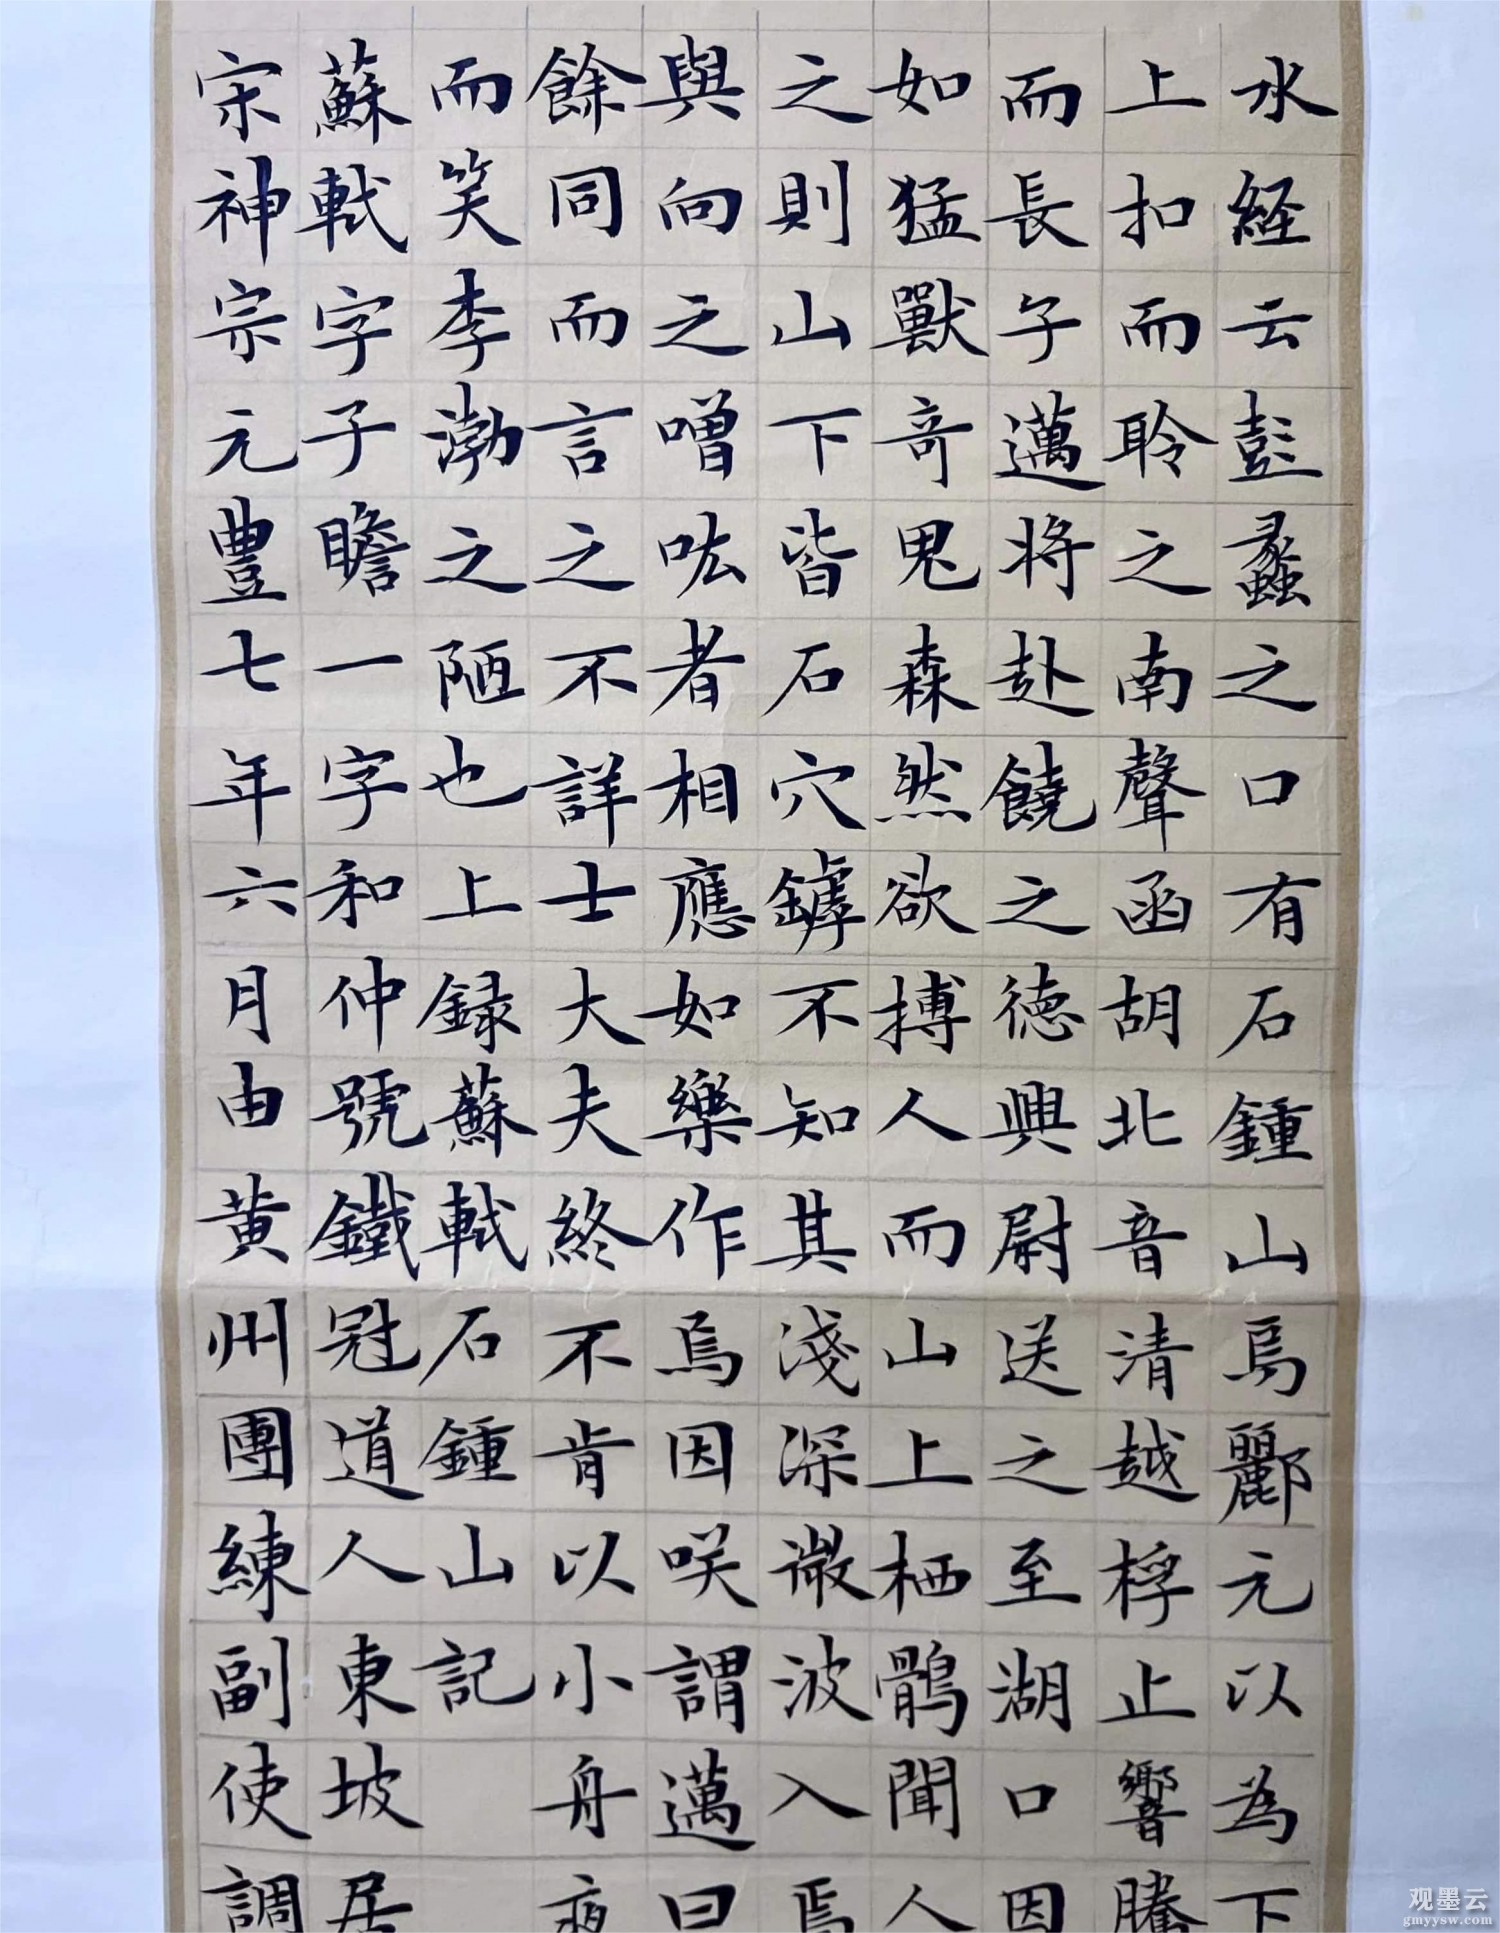 水経云彭蠡之口有石鍾山焉酈元以為下
上扣而聆之南聲函胡北音清越桴止響騰
而長子邁将赴饒之德興尉送之至湖口因
如猛獸奇鬼森然欲搏人而山上栖鶻聞人
之則山下皆石穴罅不知其淺深微波入焉
與向之噌吰者相應如樂作焉因咲謂邁曰
餘同而言之不詳士大夫終不肯以小舟夜
而笑李渤之陋也上録蘇軾石鍾山記
蘇軾字子瞻一字和仲號鐵冠道人東坡居
宋神宗元豐七年六月由黄州團練副使調
观墨云
gmyysw.com